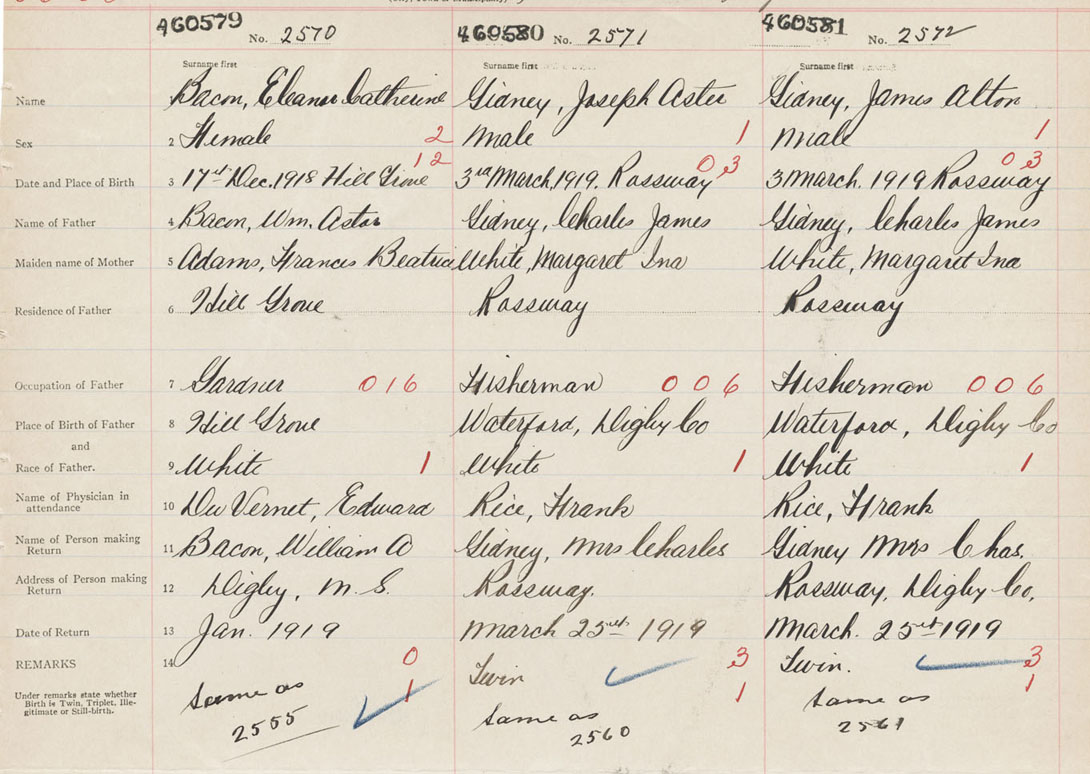 460579 No. 2570 460580 No. 2571 460581 No. 2572
Surname first Surname first Surname first
Name Bacon, Eleanor Catherine Gidney, Joseph Aster Gidney, James Alton
Sex 2 Female 2 Male 1 Male 1
12 03 03
Date and Place of Birth 3 17th Dec. 1918 Hill Grove 3rd March, 1919. Rossway 3 March. 1919 Rossway
Name of Father 4 Bacon, Wm. Astor Gidney, Charles James Gidney, Charles James
Maiden name of Mother 5 Adams, Frances Beatrice White, Margaret Ina White, Margaret Ina
Residence of Father 6 Hill Grove Rossway Rossway
Occupation of Father 7 Gardner 016 Fisherman 006 Fisherman 006
Place of Birth of Father 8 Hill Grove Waterford, Digby Co Waterford, Digby Co
and
Race of Father. 9 White 1 White 1 White 1
Name of Physician in attendance 10 Du Vernet, Edward Rice, Frank Rice, Frank
Name of Person making Return 11 Bacon, William A Gidney, Mrs Charles Gidney Mrs Chas.
Address of Person making Return 12 Digby, N. S. Rossway. Rossway, Digby Co.
Date of Return 13 Jan. 1919 March 25th 1919 March. 25th 1919
REMARKS 14 0 Twin 3 Twin. 3
Under remarks state whether Birth is Twin, Triplet, Ille-
gitimate or Still-birth.
1 1 1
Same as Same as Same as
2555 2560 2561